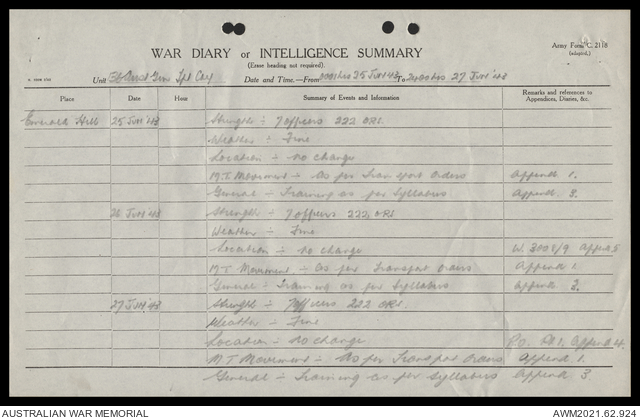 Army Form C. 2118
(adapted.)
WAR DIARY or INTELLIGENCE SUMMARY
(Erase heading not required).
Unit 36 Aust Gen Tpt Coy Date and Time.—From 0001 hrs 25 Jun '43 To 2400 hrs 27 Jun '43
Place Date Hour Summary of Events and Information Remarks and references to Appendices, Diaries, &c.
Emerald Hill 25 Jun '43 Strength :- 7 officers 222 ORs.
Weather :- Fine
Location :- No change
MT Movement :- As per Transport Orders Append 1.
General :- Training as per Syllabus Append 3.
26 Jun '43 Strength :- 7 officers 222 ORs
Weather :- Fine
Location :- No change W. 3008/9 Append 5
MT Movement :- As per Transport orders Append 1.
General :- Training as per Syllabus Append 2.
27 Jun '43 Strength :- 7 officers 222 ORs.
Weather :- Fine
Location :- No change R.O. Pt 1. Append 4.
MT Movement :- As per Transport Orders Append 1.
General :- Training as per Syllabus Append 3.
AUSTRALIAN WAR MEMORIAL AWM2021.62.924